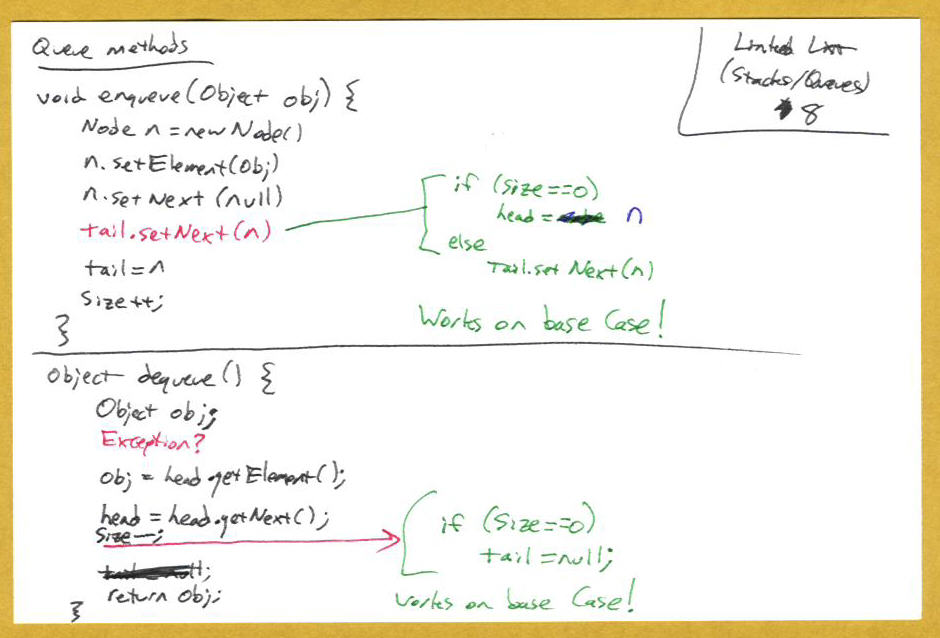 Queue methods
Linked List
(Stacks/Queues)
8
void enqueue(Object obj) {
Node n = new Node()
n.setElement(Obj)
n.setNext (null)
tail.setNext(n)
tail = n
Size++;
}
if (Size==0)
head = n
else
Tail.set Next(n)
Works on base Case!
Object dequeue() {
Object obj;
Exception?
obj = head.getElement();
head = head.getNext();
Size--;
tail = null;
return Obj;
}
if (Size==0)
tail = null;
works on base Case!